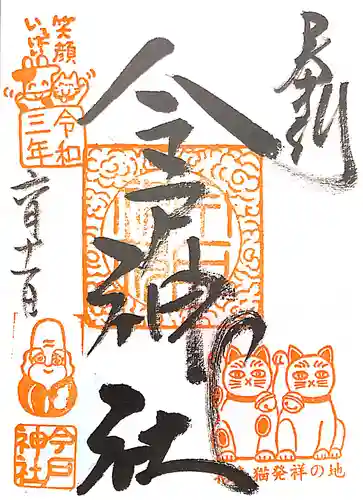 奉拝
今戸神社
笑顔
いっぱい
令和
三年
六月十一日
今戸
神社
招き猫発祥の地